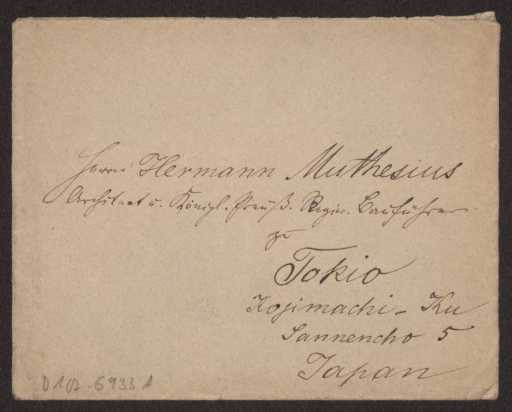 Herrn Hermann Muthesius
Architect u. Königl. Preuß. Regier. Bauführer
zu
Tokio
Kojimachi - Ku
Sannencho 5
Japan
D 102-6933 1